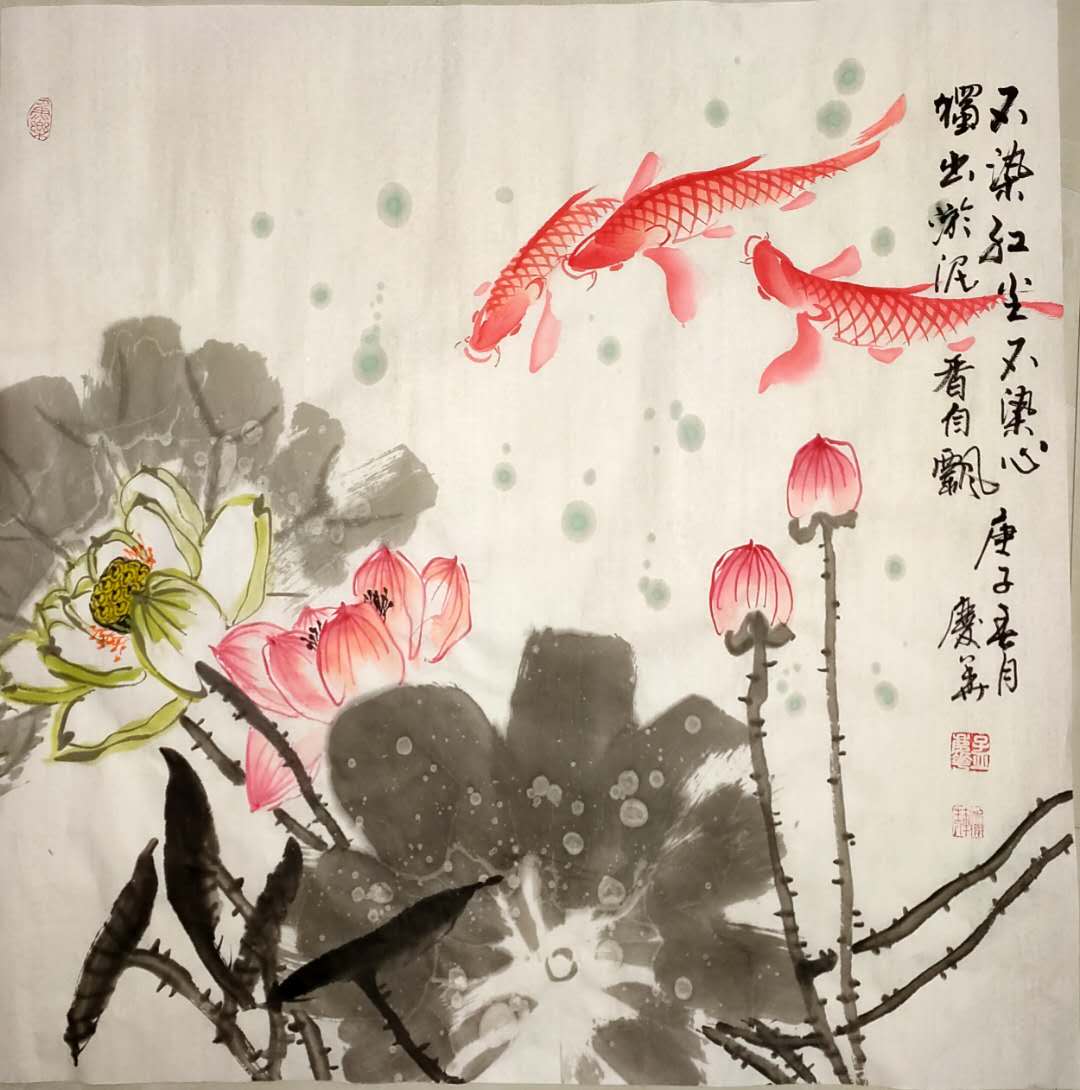 不染红尘不染心
獨出於泥香自飘
庚子春月
慶華